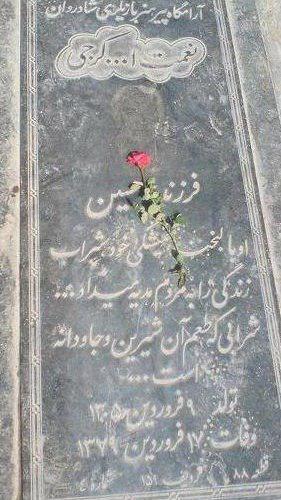 آرامگاه پیر هنر بازیگری شادروان
نعمت ا... گرجی
فرزند حسین
او با لبخند همیشگی خود شراب
زندگی را به مردم هدیه میداد...
شرابی که طعم آن شیرین و جاودانه
است...
تولد ۹ فروردین ۱۳۰۵
وفات ۱۷ فروردین ۱۳۷۹
قطعه ۸۸ ردیف ۱۵۱